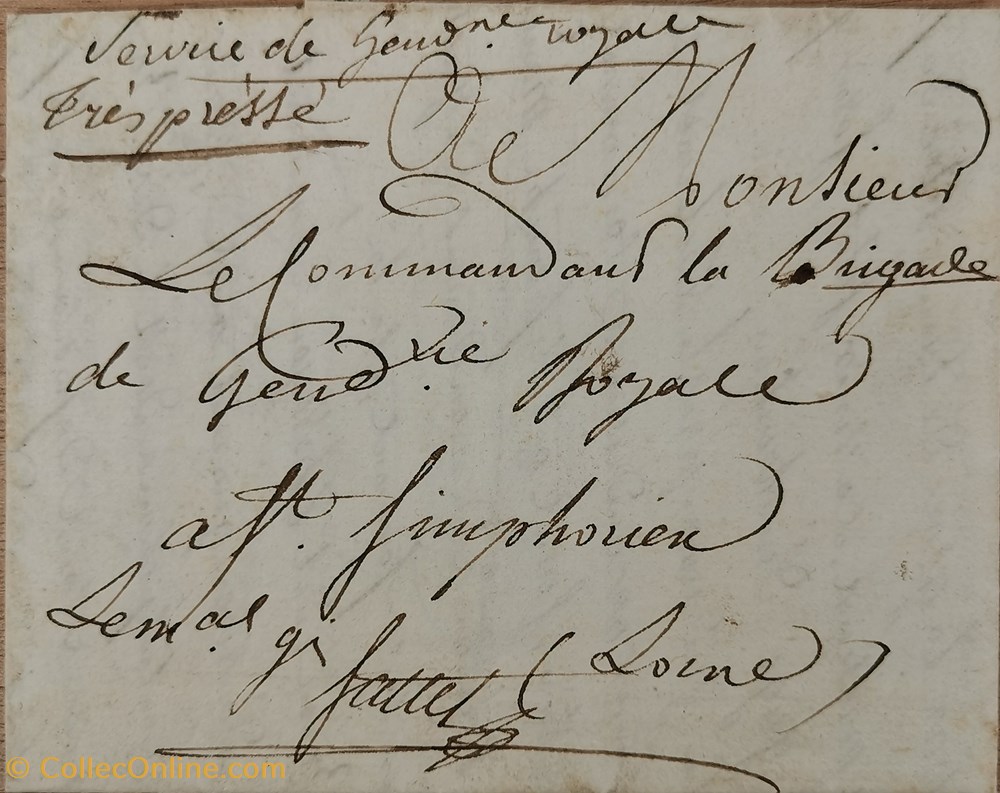 Service de Gend.rie royale
Très préssé
A Monsieur
Le Commandant la Brigade
de Gend.rie Royale
a St. Simphorien
Le m.al gis (Loire)
© CollecOnline.com